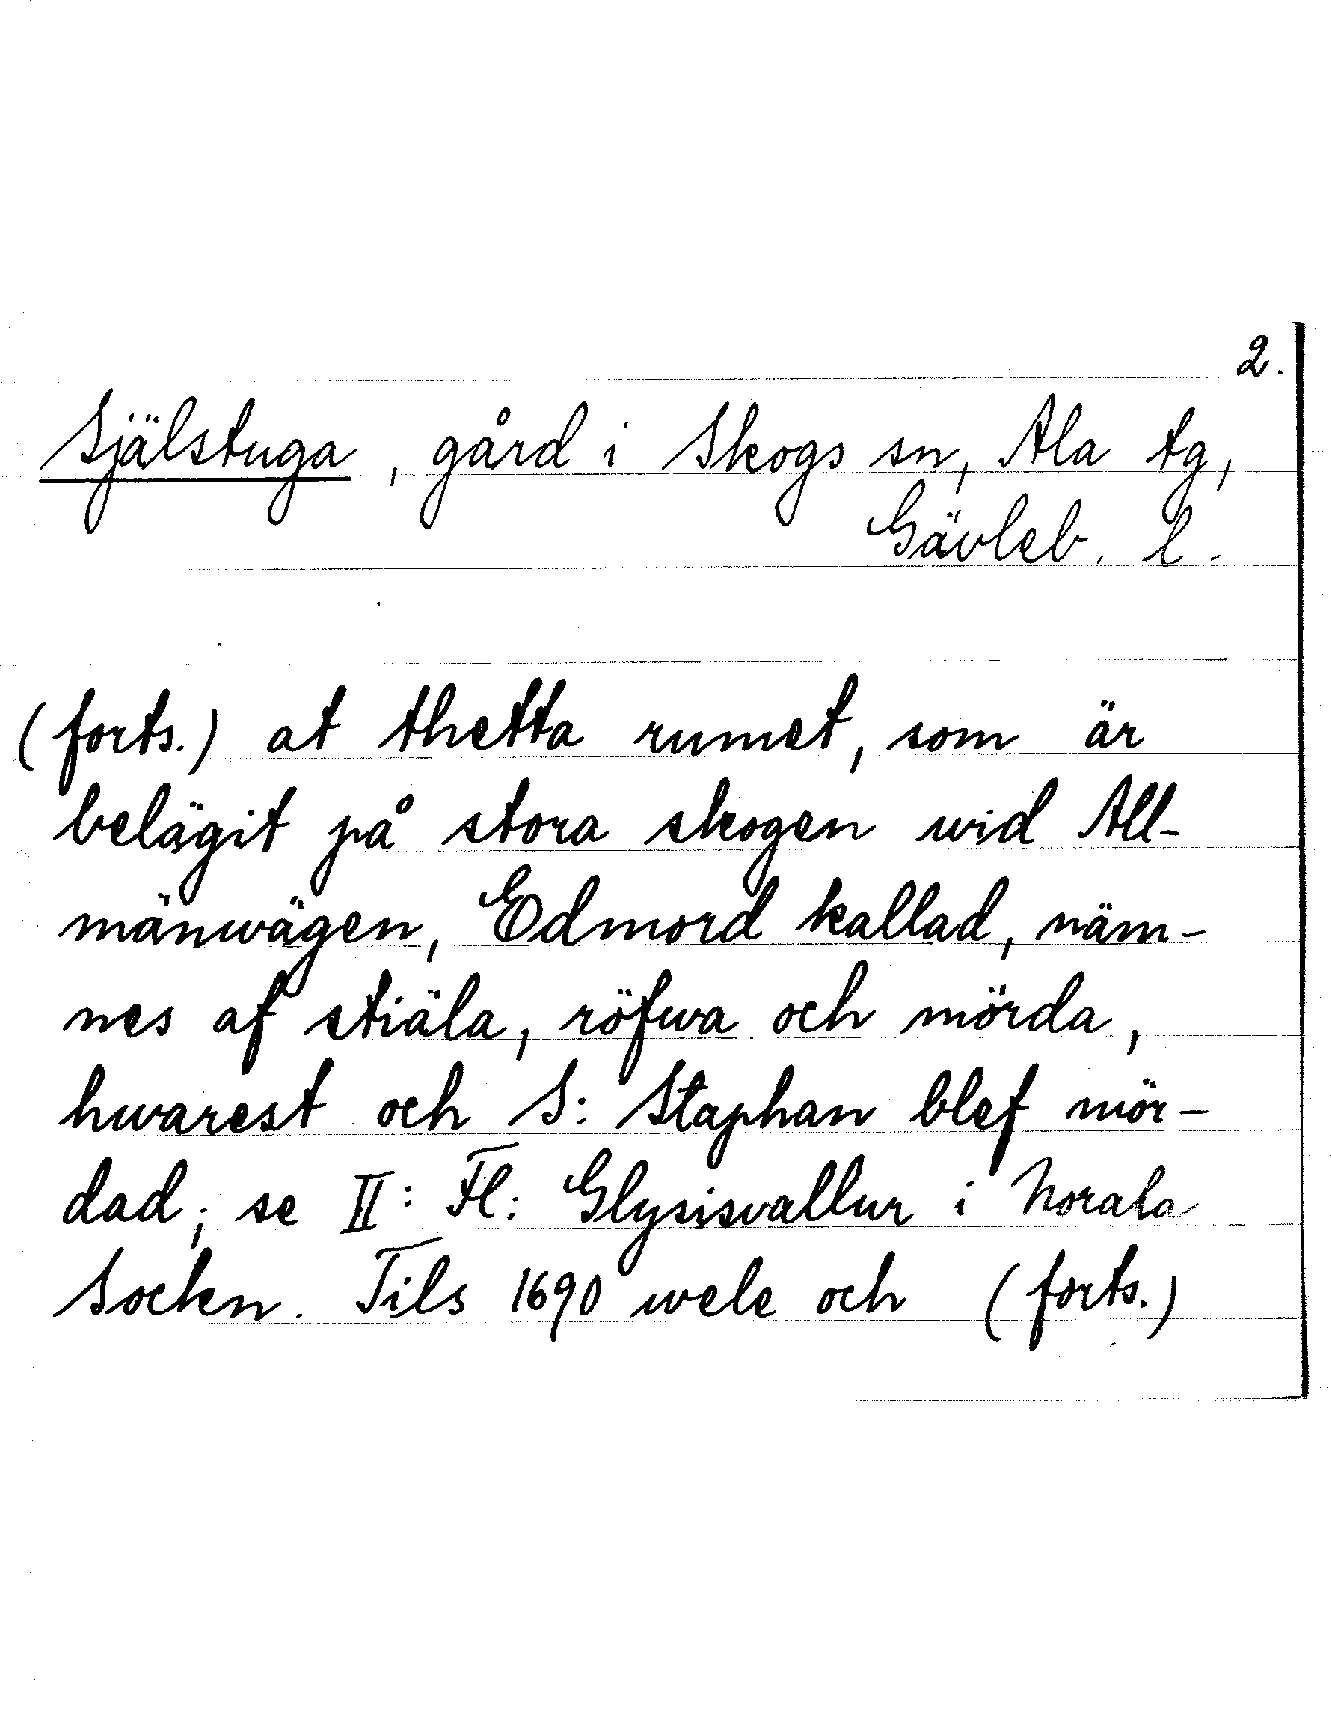 2.
Själstuga, gård i Skogs sn, Ala tg,
Gävleb. l.
(forts.) at thetta rumet, som är
belägit på stora skogen wid All-
mänwägen, Edmord kallad, näm-
nes af stiäla, röfwa och mörda,
hwarest och S: Staphan blef mör-
dad; se II: Fl: Glysisvallur i Norala
Sockn. Tils 1690 wele och (forts.)